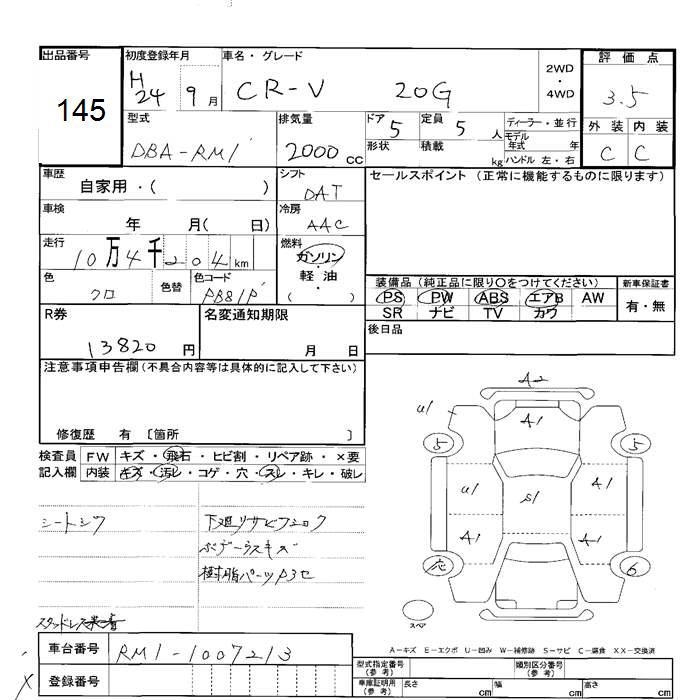 出品番号
145
初度登録年月
H 24 9月
車名・グレード
CR-V 20G
2WD
・
4WD
評価点
3.5
外装 内装
C C
型式
DBA-RM1
排気量
2000 CC
ドア 5
形状
定員 5 人
積載 kg
ディーラー・並行
モデル
年式 年
ハンドル 左・右
車歴
自家用・( )
シフト
DAT
セールスポイント (正常に機能するものに限ります)
車検
年 月( 日)
冷房
AAC
走行
10万4千204km
燃料
ガソリン
・
軽油
・
( )
色
クロ
色替
色コード
PB81P
装備品 (純正品に限り〇をつけてください)
PS PW ABS エアB AW
SR ナビ TV カワ
新車保証書
有・無
R券
13820 円
名変通知期限
月 日
後日品
注意事項申告欄 (不具合内容等は具体的に記入して下さい)
修復歴 有 〔箇所 〕
検査員
記入欄
FW キズ・飛石・ヒビ割・リペア跡・×要
内装 キズ・汚レ・コゲ・穴・スレ・キレ・破レ
シートシワ
下廻リサビフロク
樹脂パーツA3セ
スタッドレス
A2
U1
A1
5
5
U1
S1
A1
A1
A1
6
スペア
A-キズ E-エクボ U-凹み W-補修跡 S-サビ C-腐食 XX-交換済
車台番号
RM1-1007213
登録番号
型式指定番号
(参考)
類別区分番号
(参考)
車庫証明用
(参考)
長さ cm
幅 cm
高さ cm